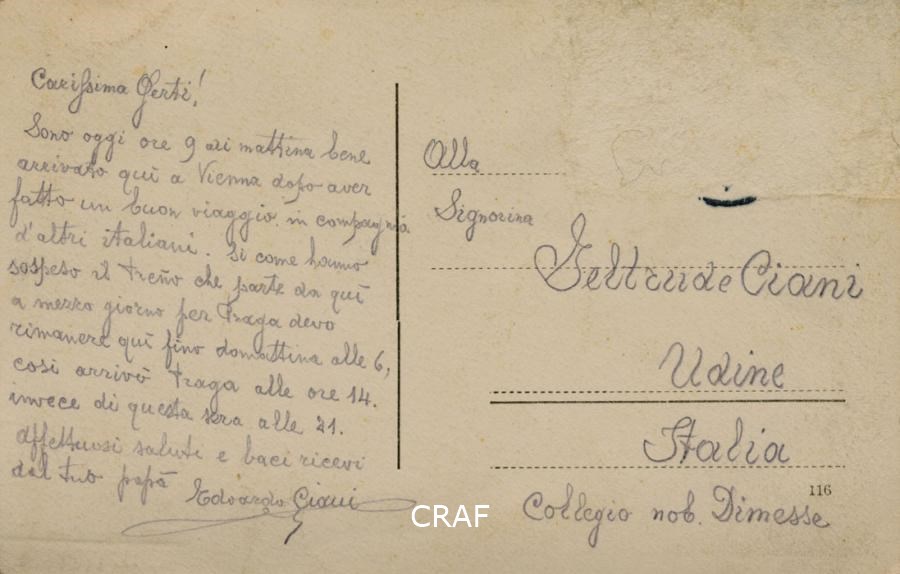 Carissima Gerti!
Sono oggi ore 9 di mattina bene
arrivato quì a Vienna dopo aver
fatto un buon viaggio in compagnia
d'altri italiani. Si come hanno
sospeso il treno che parte da quì
a mezzo giorno per Praga devo
rimanere quì fino domattina alle 6,
così arrivò Praga alle ore 14.
invece di questa sera alle 21.
Affettuosi saluti e baci ricevi
dal tuo papà
Edoardo Ciani
Alla
Signorina
Geltrude Ciani
Udine
Italia
116
Collegio nob. Dimesse
CRAF